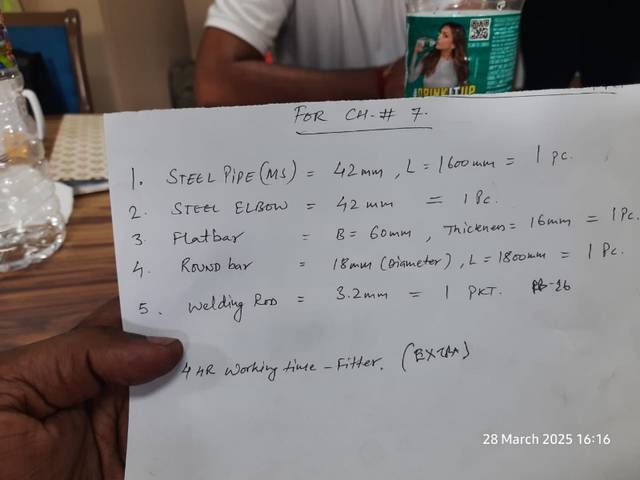 #DRINKITUP
FOR CH-# 7.
1. STEEL PIPE (MS) = 42mm, L = 1600mm = 1 pc.
2. STEEL ELBOW = 42 mm = 1 Pc.
3 Flatbar = B= 60mm, Thickness= 16mm = 1 Pc.
4. ROUND bar = 18mm (Diameter), L= 1800mm = 1 Pc.
5. Welding ROD = 3.2mm = 1 PKT.
4 HR Working time - Fitter. (EXTRA)
28 March 2025 16:16